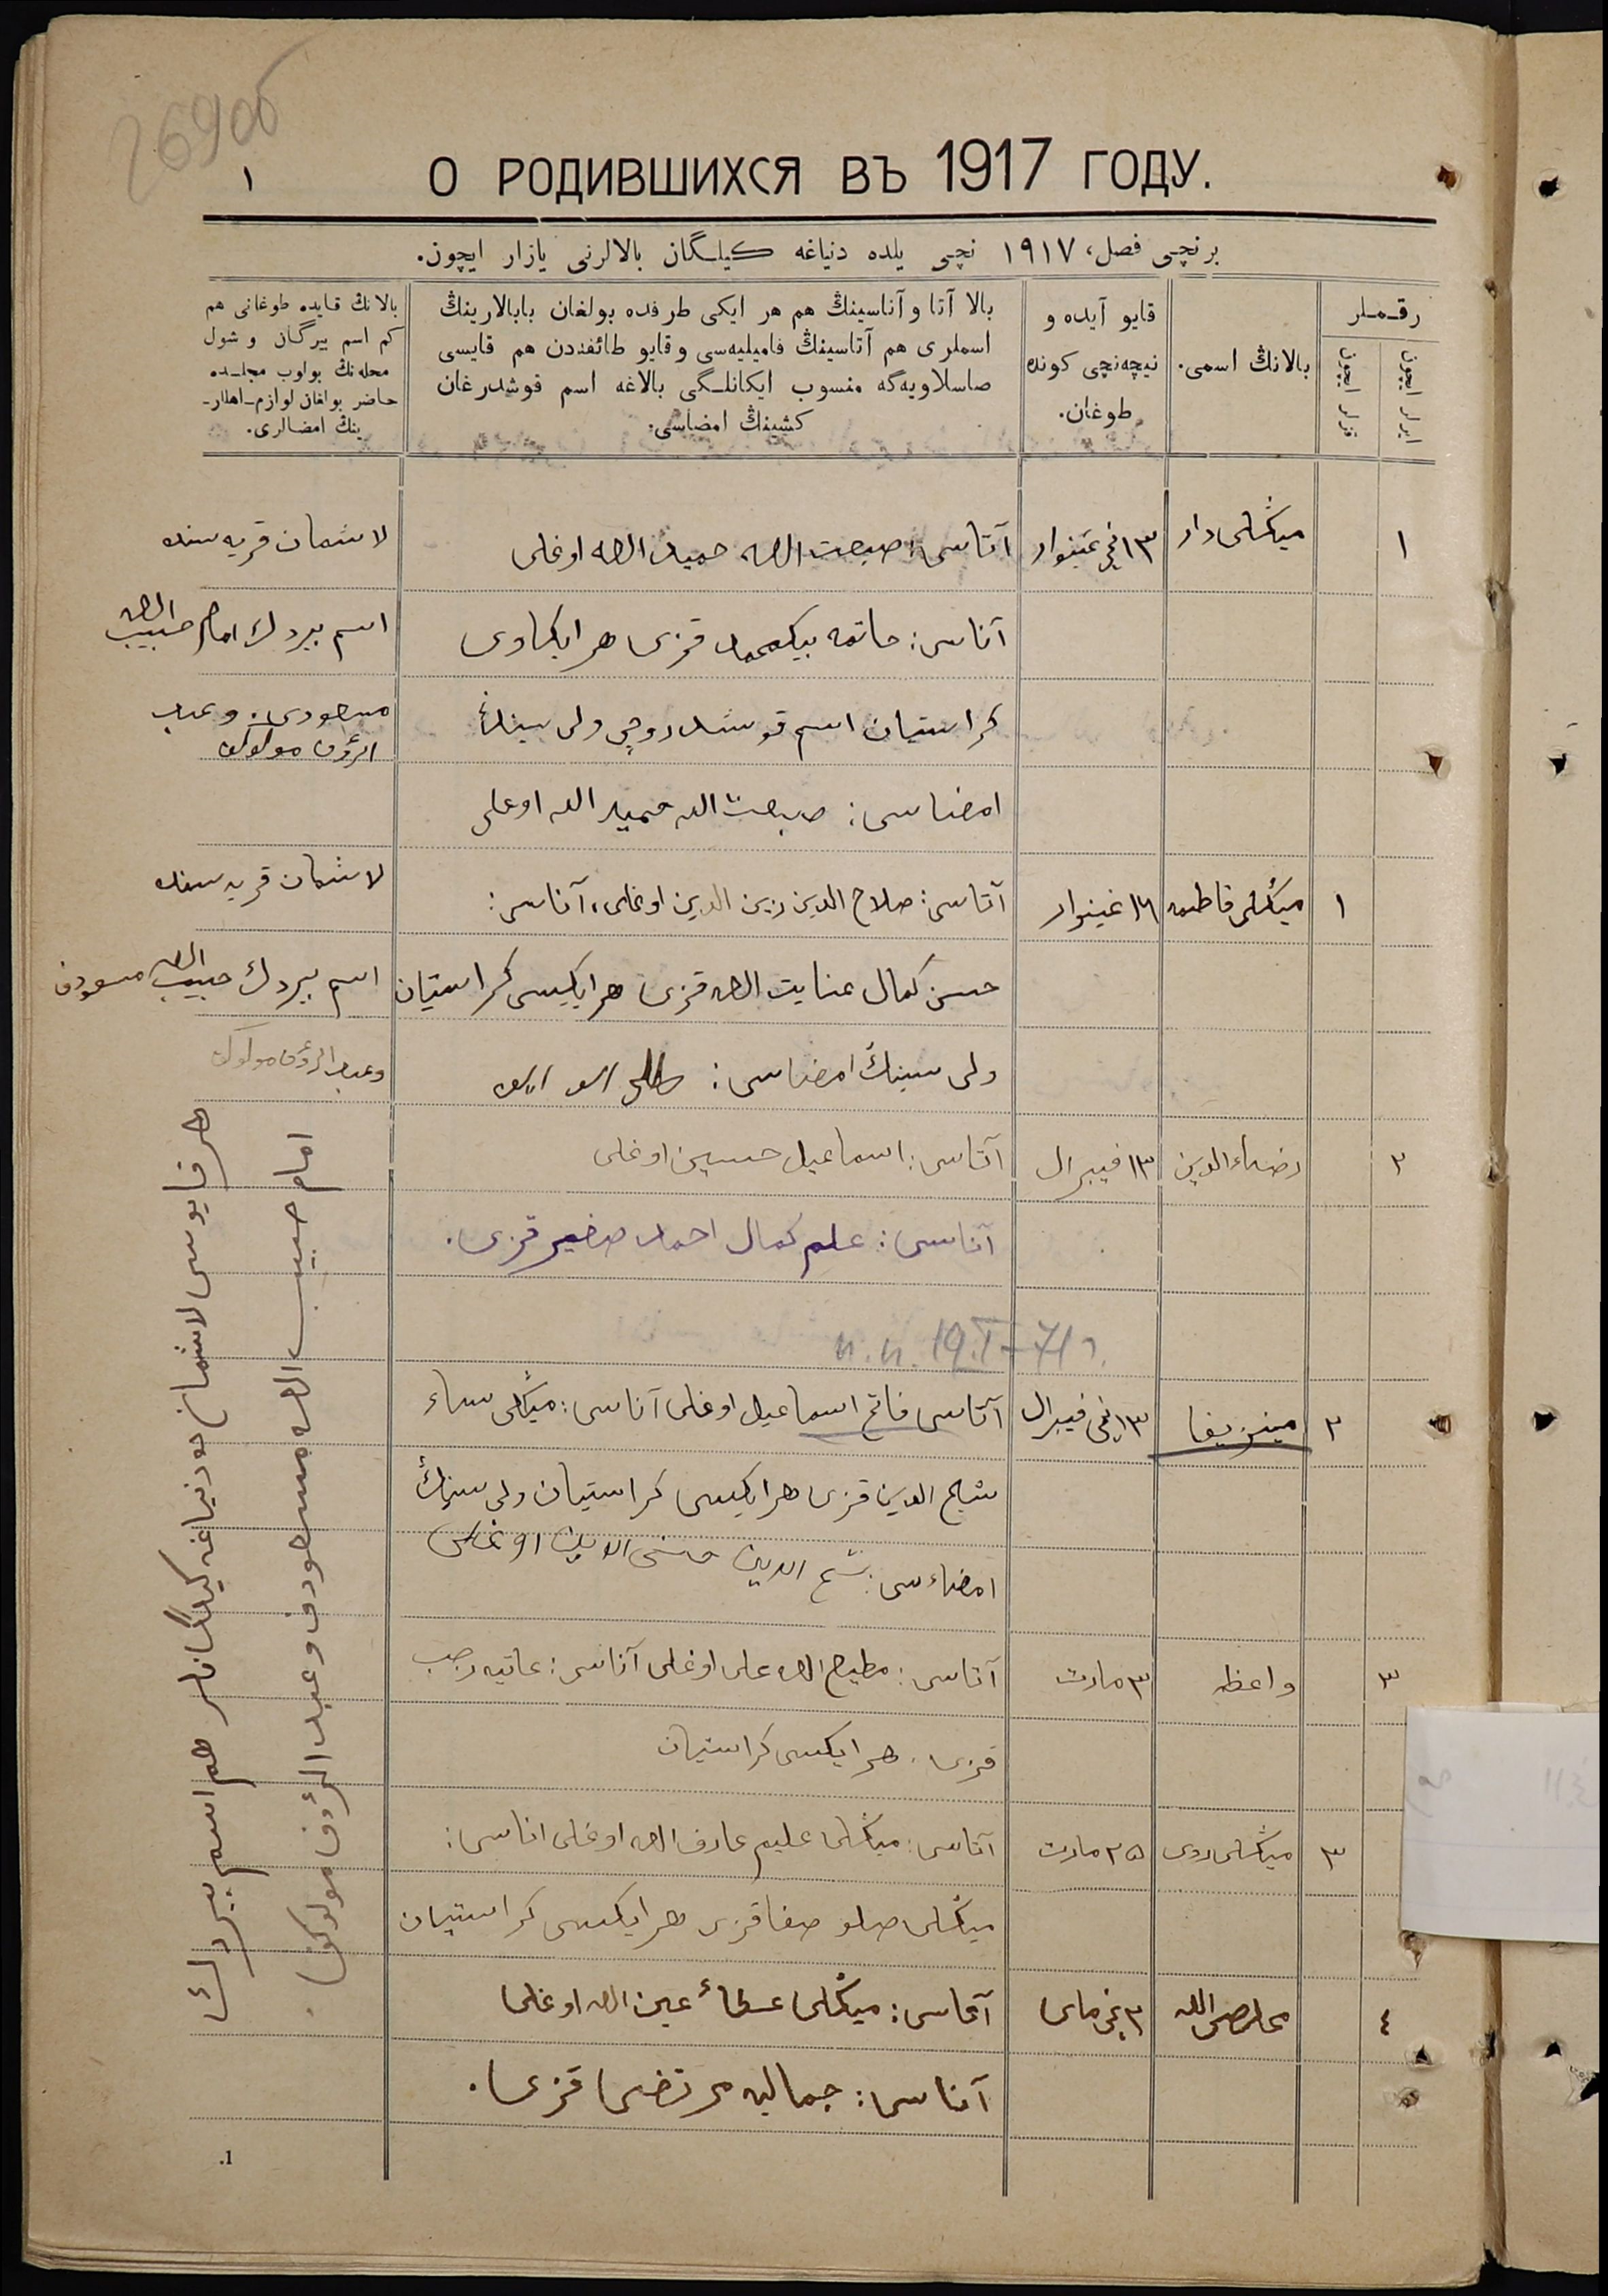 269об
١
О РОДИВШИХСЯ ВЪ 1917 ГОДУ.
برنچی فصل، ١٩١٧ نچی یلده دنیاغه کیلـگان بالالرنی یازار ایچون.
رقـملر
ایرلر ایچون
قزلر ایچون
بالانڭ اسمی.
قایو آیده و
نیچه‌نچی کونده
طوغان.
بالا آتا و آناسینڭ هم هر ایکی طرفده بولغان بابالارینڭ
اسملری هم آتاسینڭ فامیلیه‌سی و قایو طائفه‌دن هم قایسی
صاسلاویه‌گه منسوب ایکانلـگی بالاغه اسم قوشدرغان
کشینڭ امضاسی.
بالانڭ قایده طوغانی هم
کم اسم بیرگان و شول
محله‌نڭ بولوب مجلـده
حاضر بولغان لوازم اهللر-
ینڭ امضالری.
١
میڭلی دار
١٣نچی غینوار
آتاسی: صبعت الله حمید الله اوغلی
لاشمان قریه سنده
آناسی: حاتمه بیکمحمد قزی هر ایکاوی
اسم بیردك امام حبیب الله
کراستیان اسم قوشدروچی ولی سینڭ
مسعودی. و عبد
الرؤف مولوکف
امضاسی: صبعت الله حمید الله اوغلی
١
میڭلی فاطمه
١٦ غینوار
آتاسی: صلاح الدین زین الدین اوغلی، آناسی:
لاشمان قریه سنده
حسن کمال عنایت الله قزی هر ایکیسی کراستیان
اسم بیردك حبیب الله مسعودف
ولی سینڭ امضاسی:
وعبد الرؤف مولوکف
٢
رضاء الدین
١٣ فیبرال
آتاسی: اسماعیل حسین اوغلی
آناسی: علم کمال احمد صغیر قزی.
п.п. 19.I-71г.
٢
مینزیفا
١٣نچی فیبرال
آتاسی فاتح اسماعیل اوغلی آناسی: میڭلی نساء
الدین قزی هر ایکیسی کراستیان ولی سینڭ
امضاءسی: الدین اوغلی
٣
واعظه
٣ مارت
آتاسی: مطیع الله علی اوغلی آناسی: عاتیه رجب
قزی. هر ایکسی کراستیان
٣
میڭلی روی
٢٥ مارت
آتاسی: میڭلی علیم عارف الله اوغلی اناسی:
میڭلی صلو صفا قزی هر ایکسی کراستیان
٤
٣نچی مای
آتاسی: میڭلی عطاء عین الله اوغلی
آناسی: جمالیه مرتضی قزی.
هر قایوسی لاشمان ده دنیاغه کیلگانلر هم اسم بیردك
امام حبیب الله مسعودف و عبد الرؤف مولوکف.
1.